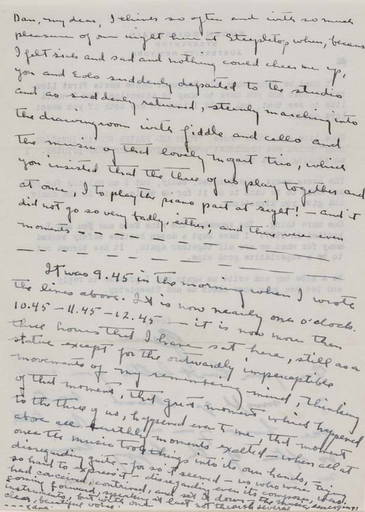 Dan, my dear, I relive so often and with so much
pleasure of our night here at Steepletop, when, because
I felt sick and sad and nothing could cheer me up,
you and Eolo suddenly departed to the studio
and as suddenly returned, sternly marching into
the drawingroom with fiddle and cello and
the music of that lovely Mozart trio, which
you insisted that the three of us play together and
at once, I to play the piano part at sight! — and it
did not go so very badly, either; and there were even
moments - - - - - -
- - - - - - - -
It was 9.45 in the morning when I wrote
the lines above. It is now nearly one o'clock.
10.45 — 11.45 — 12.45 — it is now more than
three hours that I have sat here, still as a
statue except for the outwardly imperceptible
movements of my remembering mind, thinking
of that moment, that great moment which happened
to the three of us, happened even to me, that moment
above all mortally moments exalted — when all at
once the music took things into its own hands,
disregarding quite, — for so it seemed — us who
so had to express it — disregarding even its composer, who
had conceived, contrived, and set it down,
coming forward, speaking
instruments, but with one
clear, beautiful voice.